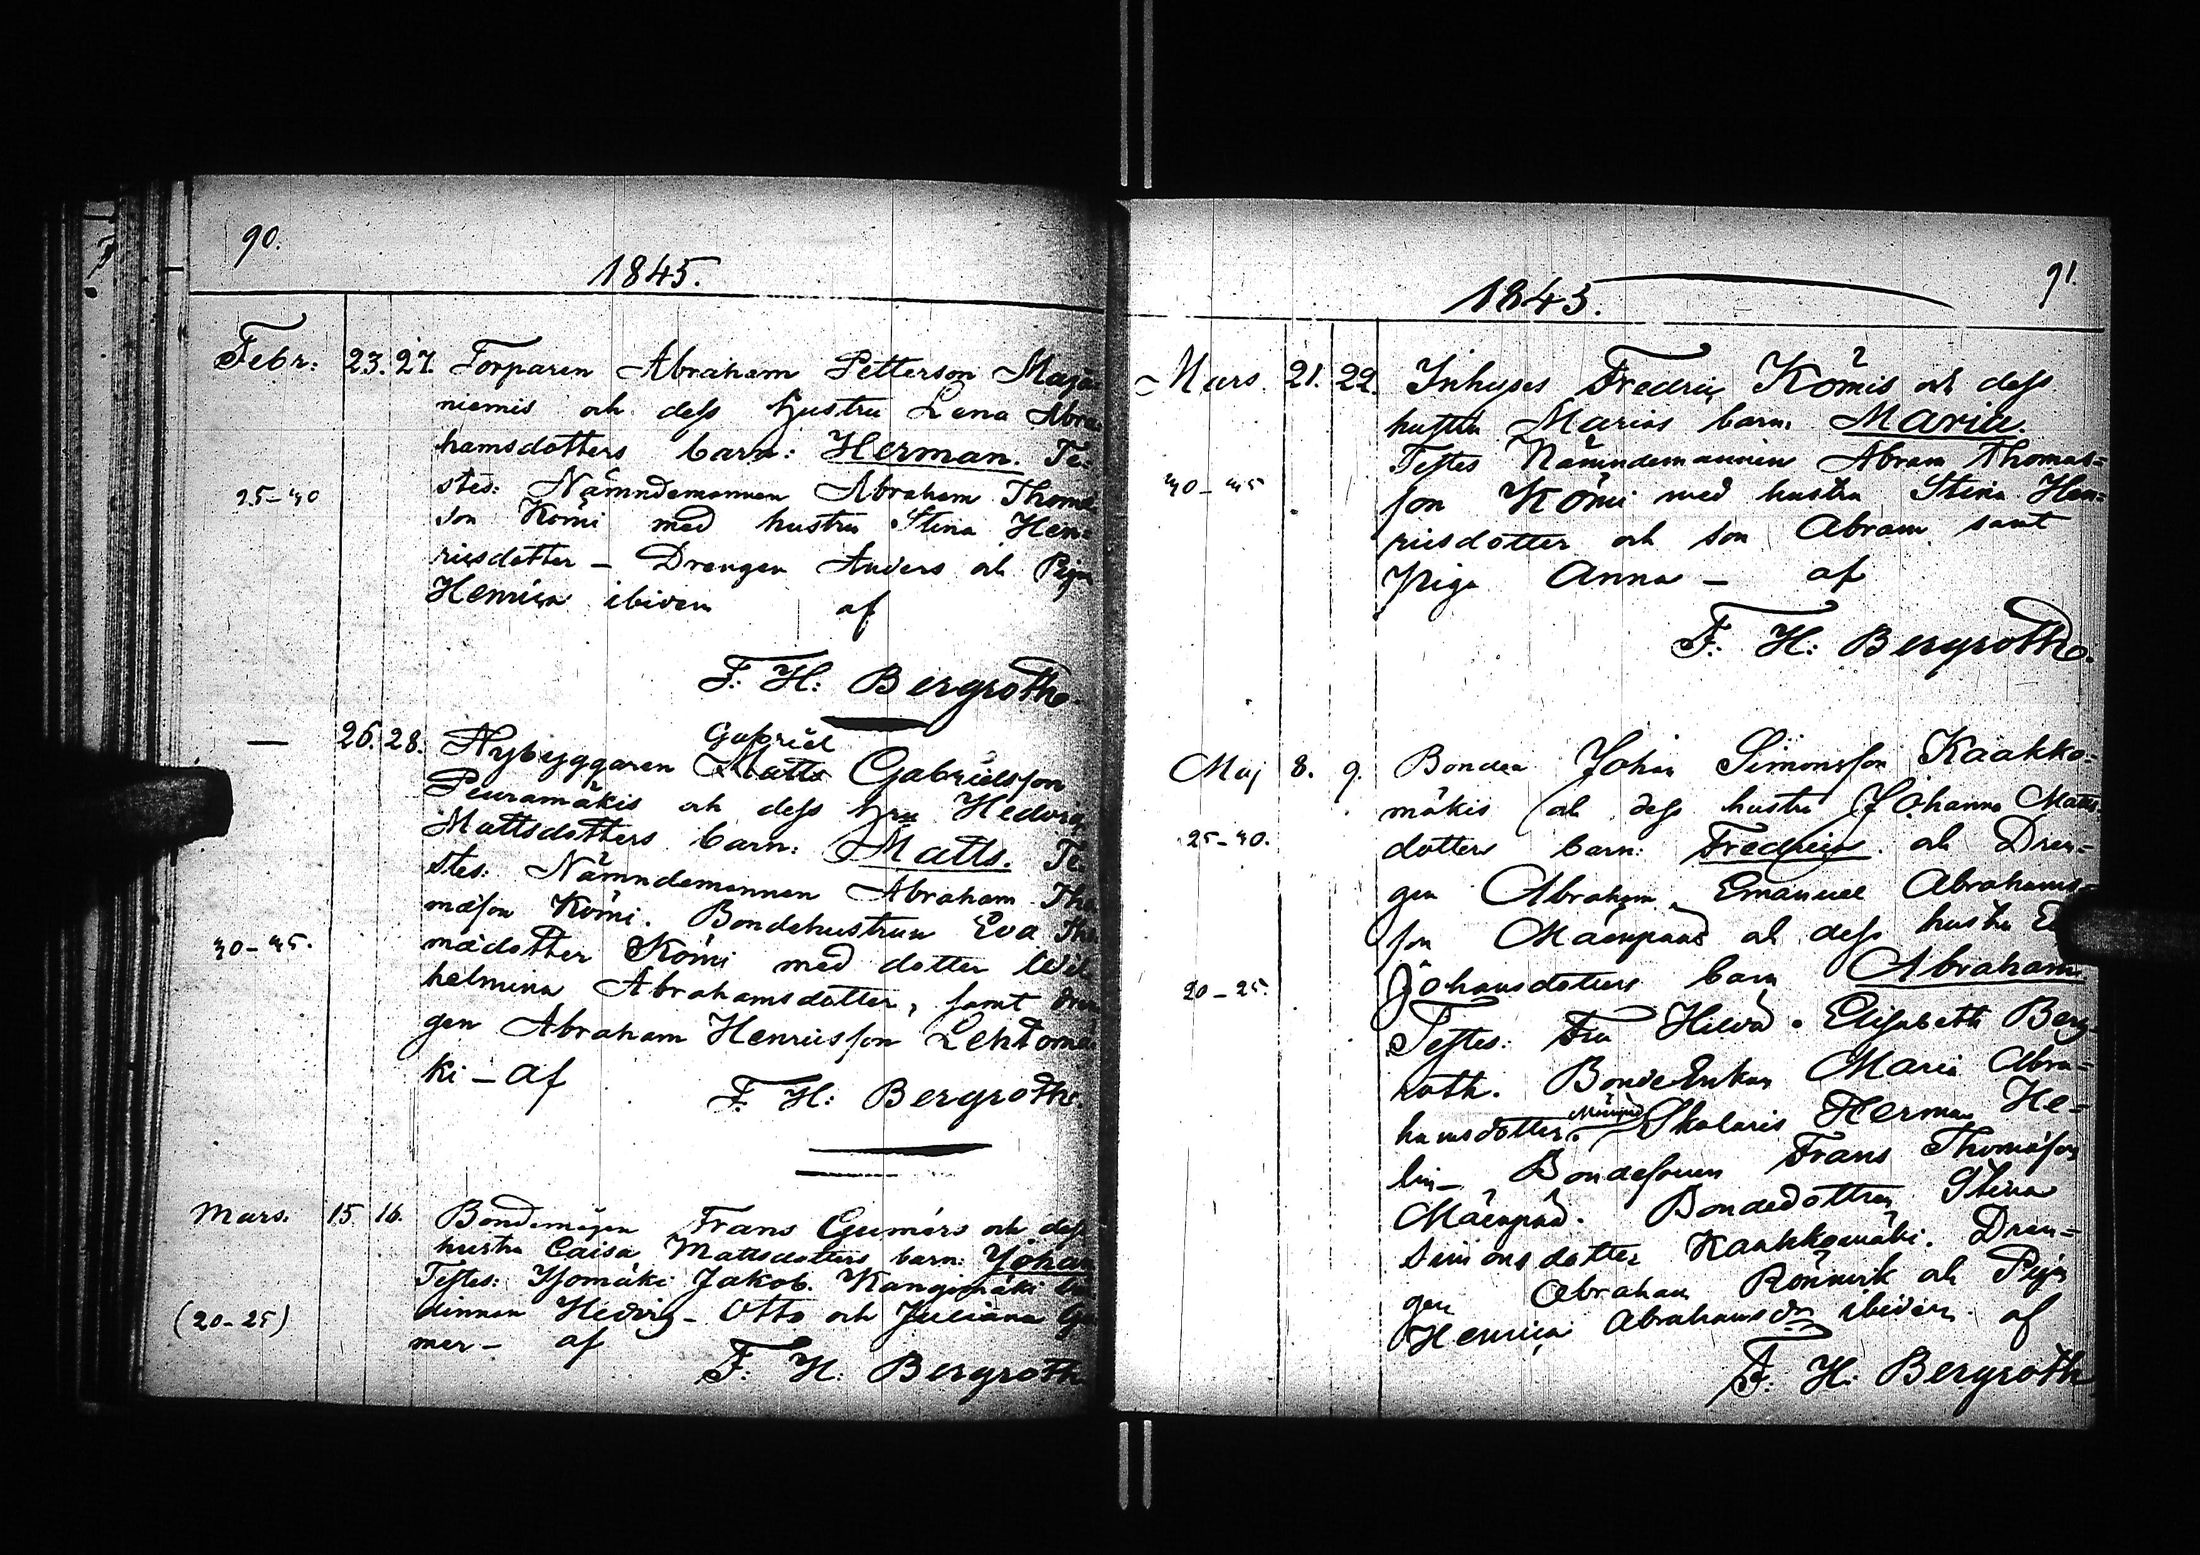 90.
1845.
Febr. 23. 27. Torparen Abraham Petterson Maja
niemis och dess hustru Lena Abra
hamsdotters barn: Herman. Te-
stes: Nämndemannen Abraham Thoma
25-30
son Kömi med hustru Stina Hen-
ricsdotter – Drengen Anders och Piga
Henrica ibidem af
F. H: Bergroth.
Gabriel
— 26. 28. Nybyggaren Matts Gabrielsson
Peuramäkis och dess hru Hedvig
Mattsdotters barn: Matts. Te
stes: Nämndemannen Abraham Tho
masson Kömi. Bondehustrun Eva Tho
30-35.
mædotter Kömi med dotter Wil
helmina Abrahamsdotter, samt dren
gen Abraham Henricsson Lehtomä
ki – af
F. H: Bergroth.
Mars. 15. 16. Bondemågen Frans Gumérs och dess
hustru Caisa Mattsdotters barn: Johan
Testes: Isomäki Jakob. Kangismäki
dinnan Hedvig – Otto och Juliana Gu
(20-25)
mer – af
F. H: Bergroth
91.
1845.
Mars. 21. 22. Inhyses Fredric Kömis och dess
hustru Marias barn Maria.
Testes Nämndemannen Abram Thomas-
30-35
son Kömi med hustru Stina Hen-
ricsdotter och son Abram samt
piga Anna – af
F. H: Bergroth.
Maj 8. 9. Bonden Johan Simonsson Kaakko-
mäkis och dess hustru Johanna Matts
25-30.
dotters barn: Fredric. och Dren-
gen Abraham Emanuel Abrahams-
son Mäenpääs och dess hustru
20-25.
Johansdotters barn Abraham
Testes: Fru Hilda Elisabeth Berg-
roth. Bonde Enkan Maria Abra-
hamsdotter. Skolaris Herman He-
lin – Bondesonen Frans Thomasson
Mäenpää. Bondedottren Stina
Simonsdotter Kaakkomäki. Dren-
gen Abraham Rönnvik och Pigan
Henrica Abrahamsdr ibidem. af
F. H: Bergroth